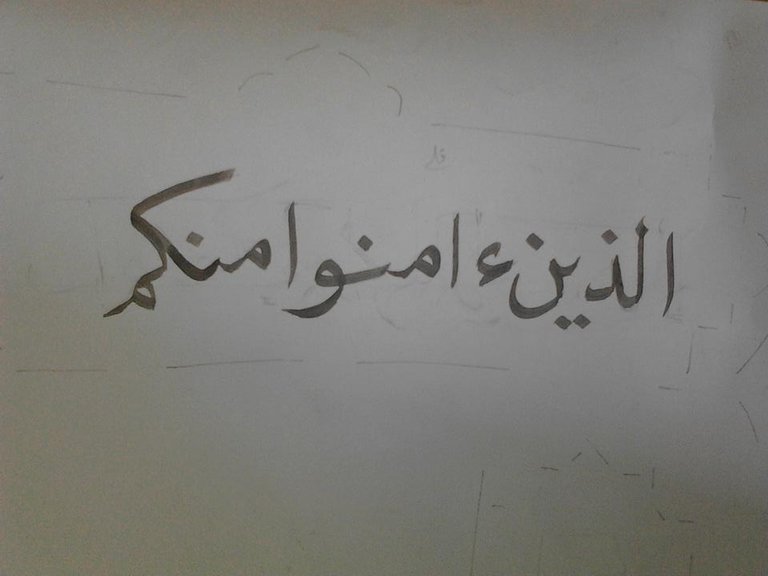 الذين ءامنوا منكم